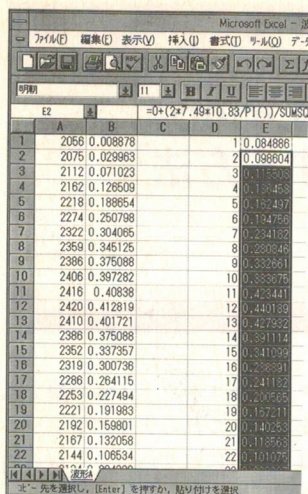 Microsoft Excel - 波
ファイル(F) 編集(E) 表示(V) 挿入(I) 書式(T) ツール(O) デー
明朝 11 B I U
E2 =0+(2*7.49*10.83/PI())/SUMSQ
A B C D E
1 2056 0.008878 1 0.084886
2 2075 0.029963 2 0.098604
3 2112 0.071023 3 0.115508
4 2162 0.126509 4 0.136458
5 2218 0.188654 5 0.162497
6 2274 0.250798 6 0.194756
7 2322 0.304065 7 0.234182
8 2359 0.345125 8 0.280846
9 2386 0.375088 9 0.332661
10 2406 0.397282 10 0.383675
11 2416 0.40838 11 0.423441
12 2420 0.412819 12 0.440189
13 2410 0.401721 13 0.427932
14 2386 0.375088 14 0.391114
15 2352 0.337357 15 0.341099
16 2319 0.300736 16 0.288891
17 2286 0.264115 17 0.241182
18 2253 0.227494 18 0.200565
19 2221 0.191983 19 0.167211
20 2192 0.159801 20 0.140253
21 2167 0.132058 21 0.118563
22 2144 0.106534 22 0.101075
波形A
コピー先を選択し、[Enter] を押すか、貼り付けを選択